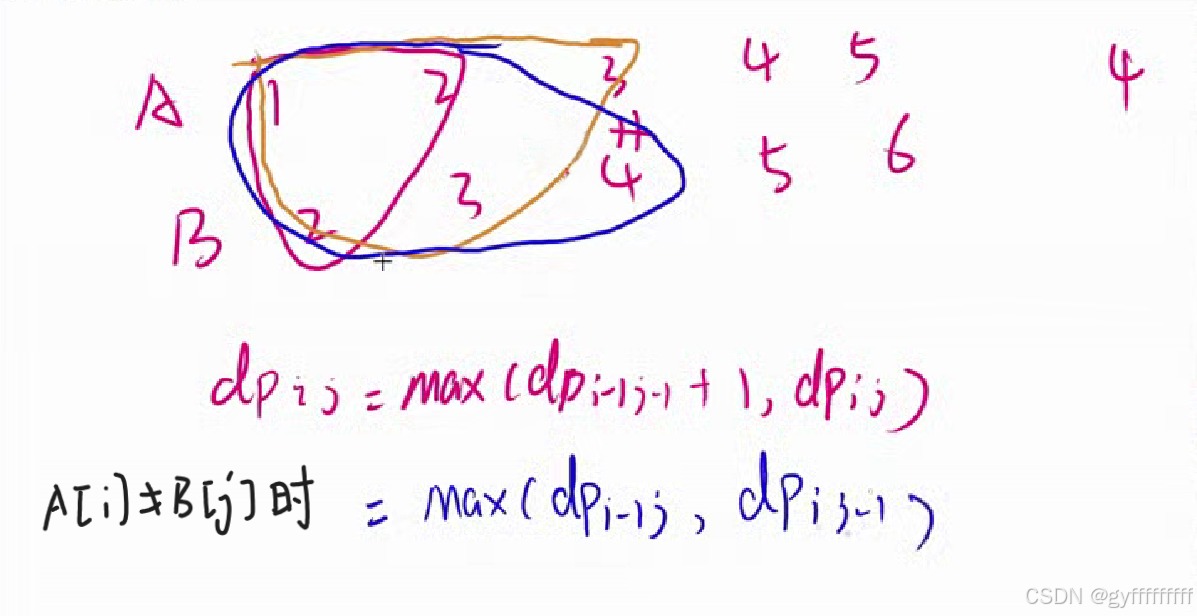 A 1 2 3 4 5 4
B 2 3 4 5 6
dp i j = max(dp i-1 j-1 + 1, dp i j)
A[i]≠B[j]时 = max(dp i-1 j, dp i j-1)
CSDN @gyfffffffff